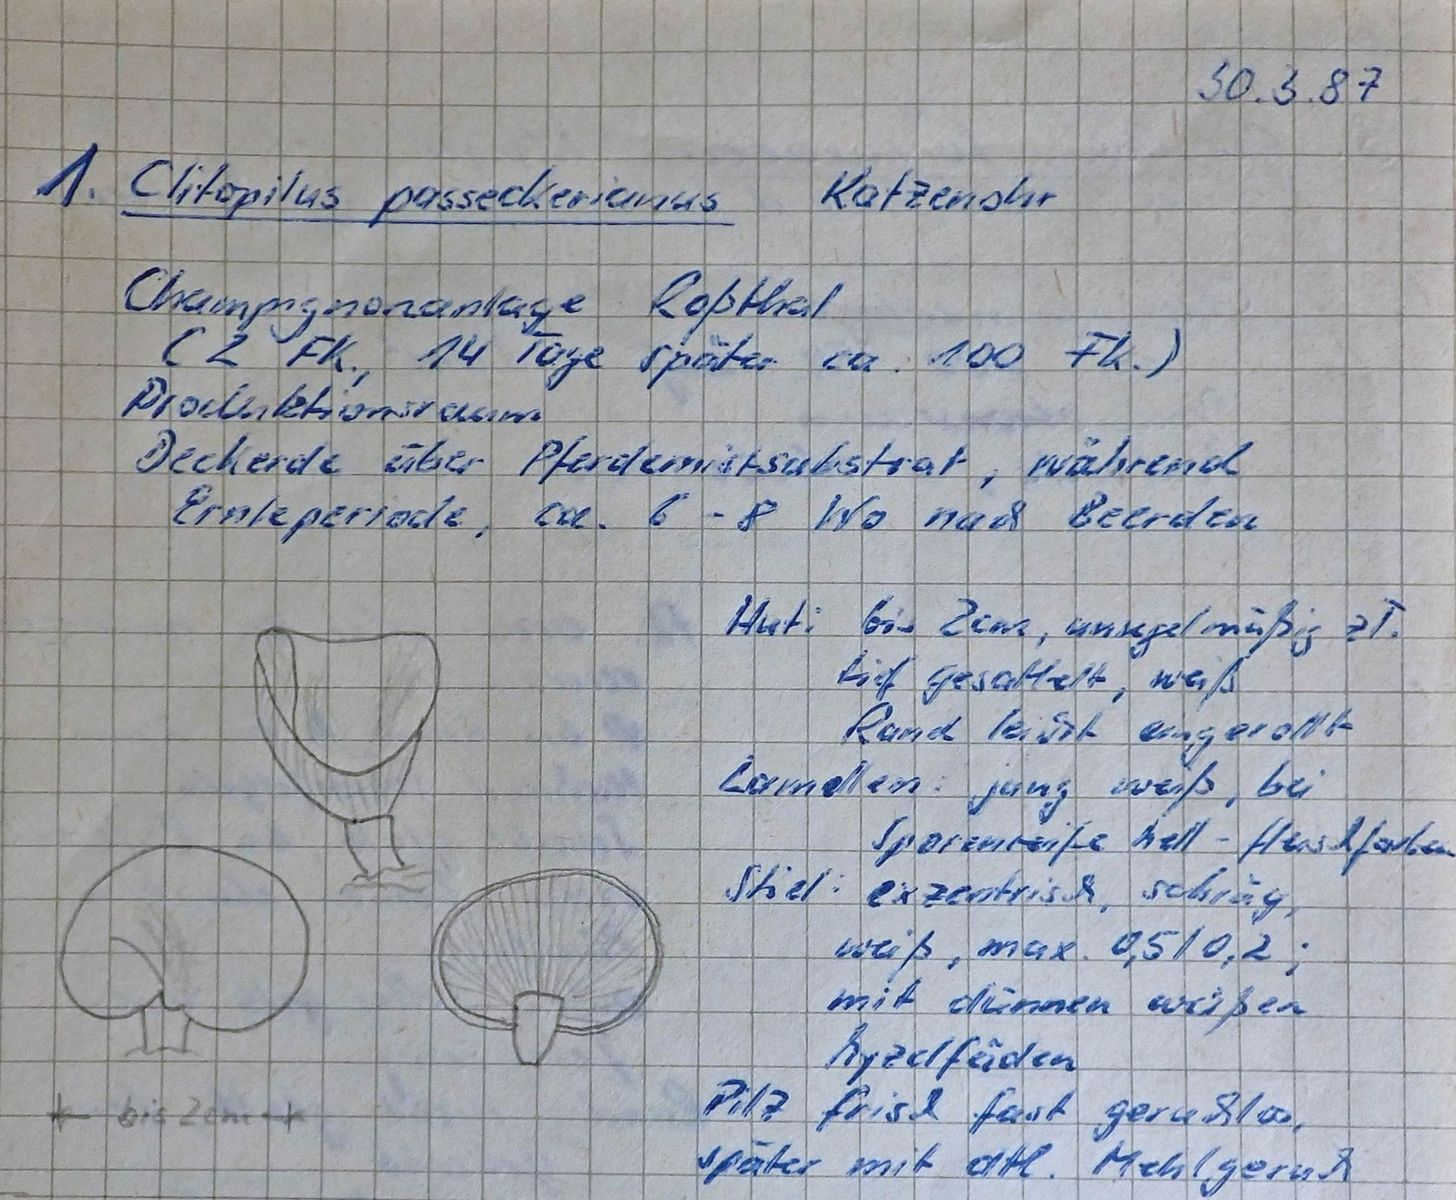 30.3.87
1. Clitopilus passeckerianus Katzenohr
Champignonanlage Roßthal
(2 FK., 14 Tage später ca. 100 FK.)
Produktionsraum
Deckerde über Pferdemistsubstrat, während
Ernteperiode, ca. 6 - 8 Wo nach Beerden
Hut: bis 2cm, unregelmäßig zT.
tief gesattelt, weiß
Rand leicht eingerollt
Lamellen: jung weiß, bei
Sporenreife hell - fleischfarben
Stiel: exzentrisch, schräg,
weiß, max. 0,5/0,2;
mit dünnen weißen
Myzelfäden
Pilz frisch fast geruchlos,
später mit dtl. Mehlgeruch
bis 2cm